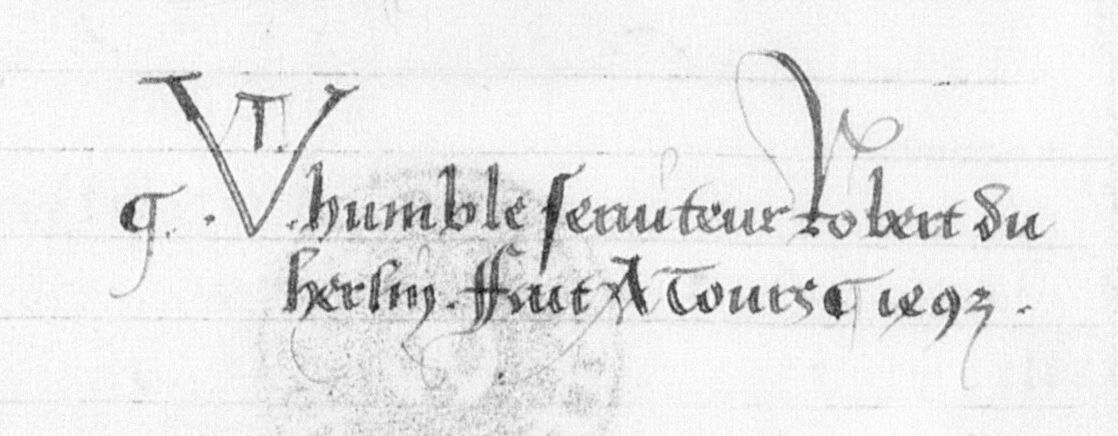 ¶ . VT . humble seruiteur Robert du
herlin . ffait A Tours ¶ 1493 .